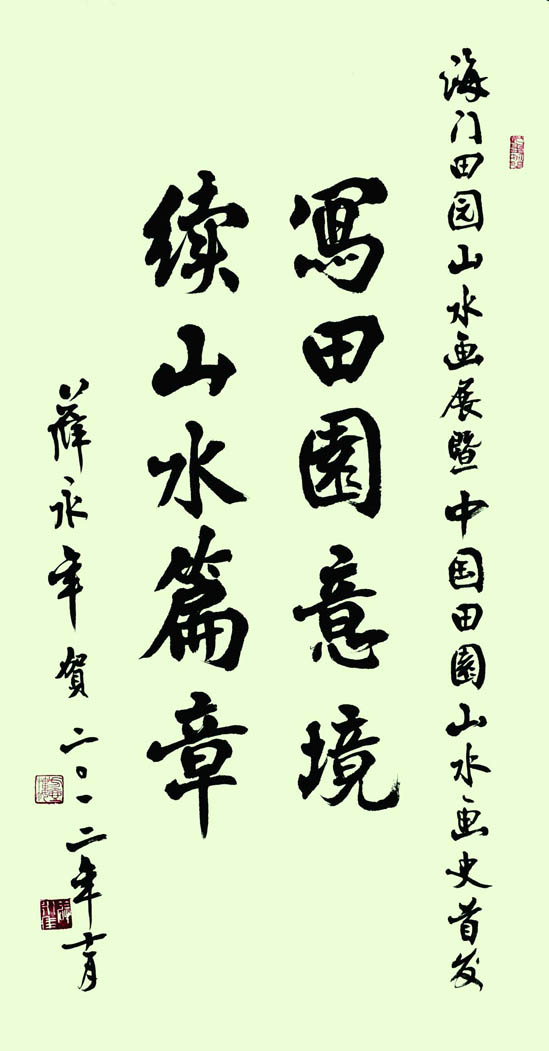 海门田园山水画展暨中国田園山水画史首发
寫田園意境
续山水篇章
薛永年贺二〇一二年十月